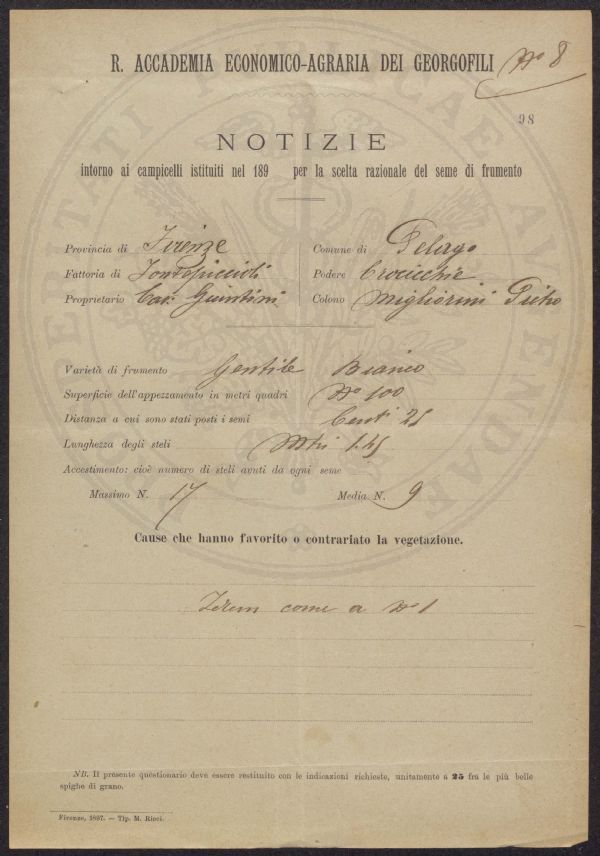 R. ACCADEMIA ECONOMICO-AGRARIA DEI GEORGOFILI
Nº 8
98
NOTIZIE
intorno ai campicelli istituiti nel 189 per la scelta razionale del seme di frumento
Provincia di Firenze
Comune di Pelago
Fattoria di Fontepiccioli
Podere Crocicchie
Proprietario Cav. Guintini
Colono Migliorini Pietro
Varietà di frumento Gentile Bianco
Superficie dell'appezzamento in metri quadri Nº 100
Distanza a cui sono stati posti i semi Centi 25
Lunghezza degli steli Mtri 1.45
Accestimento: cioè numero di steli avuti da ogni seme
Massimo N. 17 Media N. 9
Cause che hanno favorito o contrariato la vegetazione.
come a Nº 1
NB. Il presente questionario deve essere restituito con le indicazioni richieste, unitamente a 25 fra le più belle
spighe di grano.
Firenze, 1897. — Tip. M. Ricci.